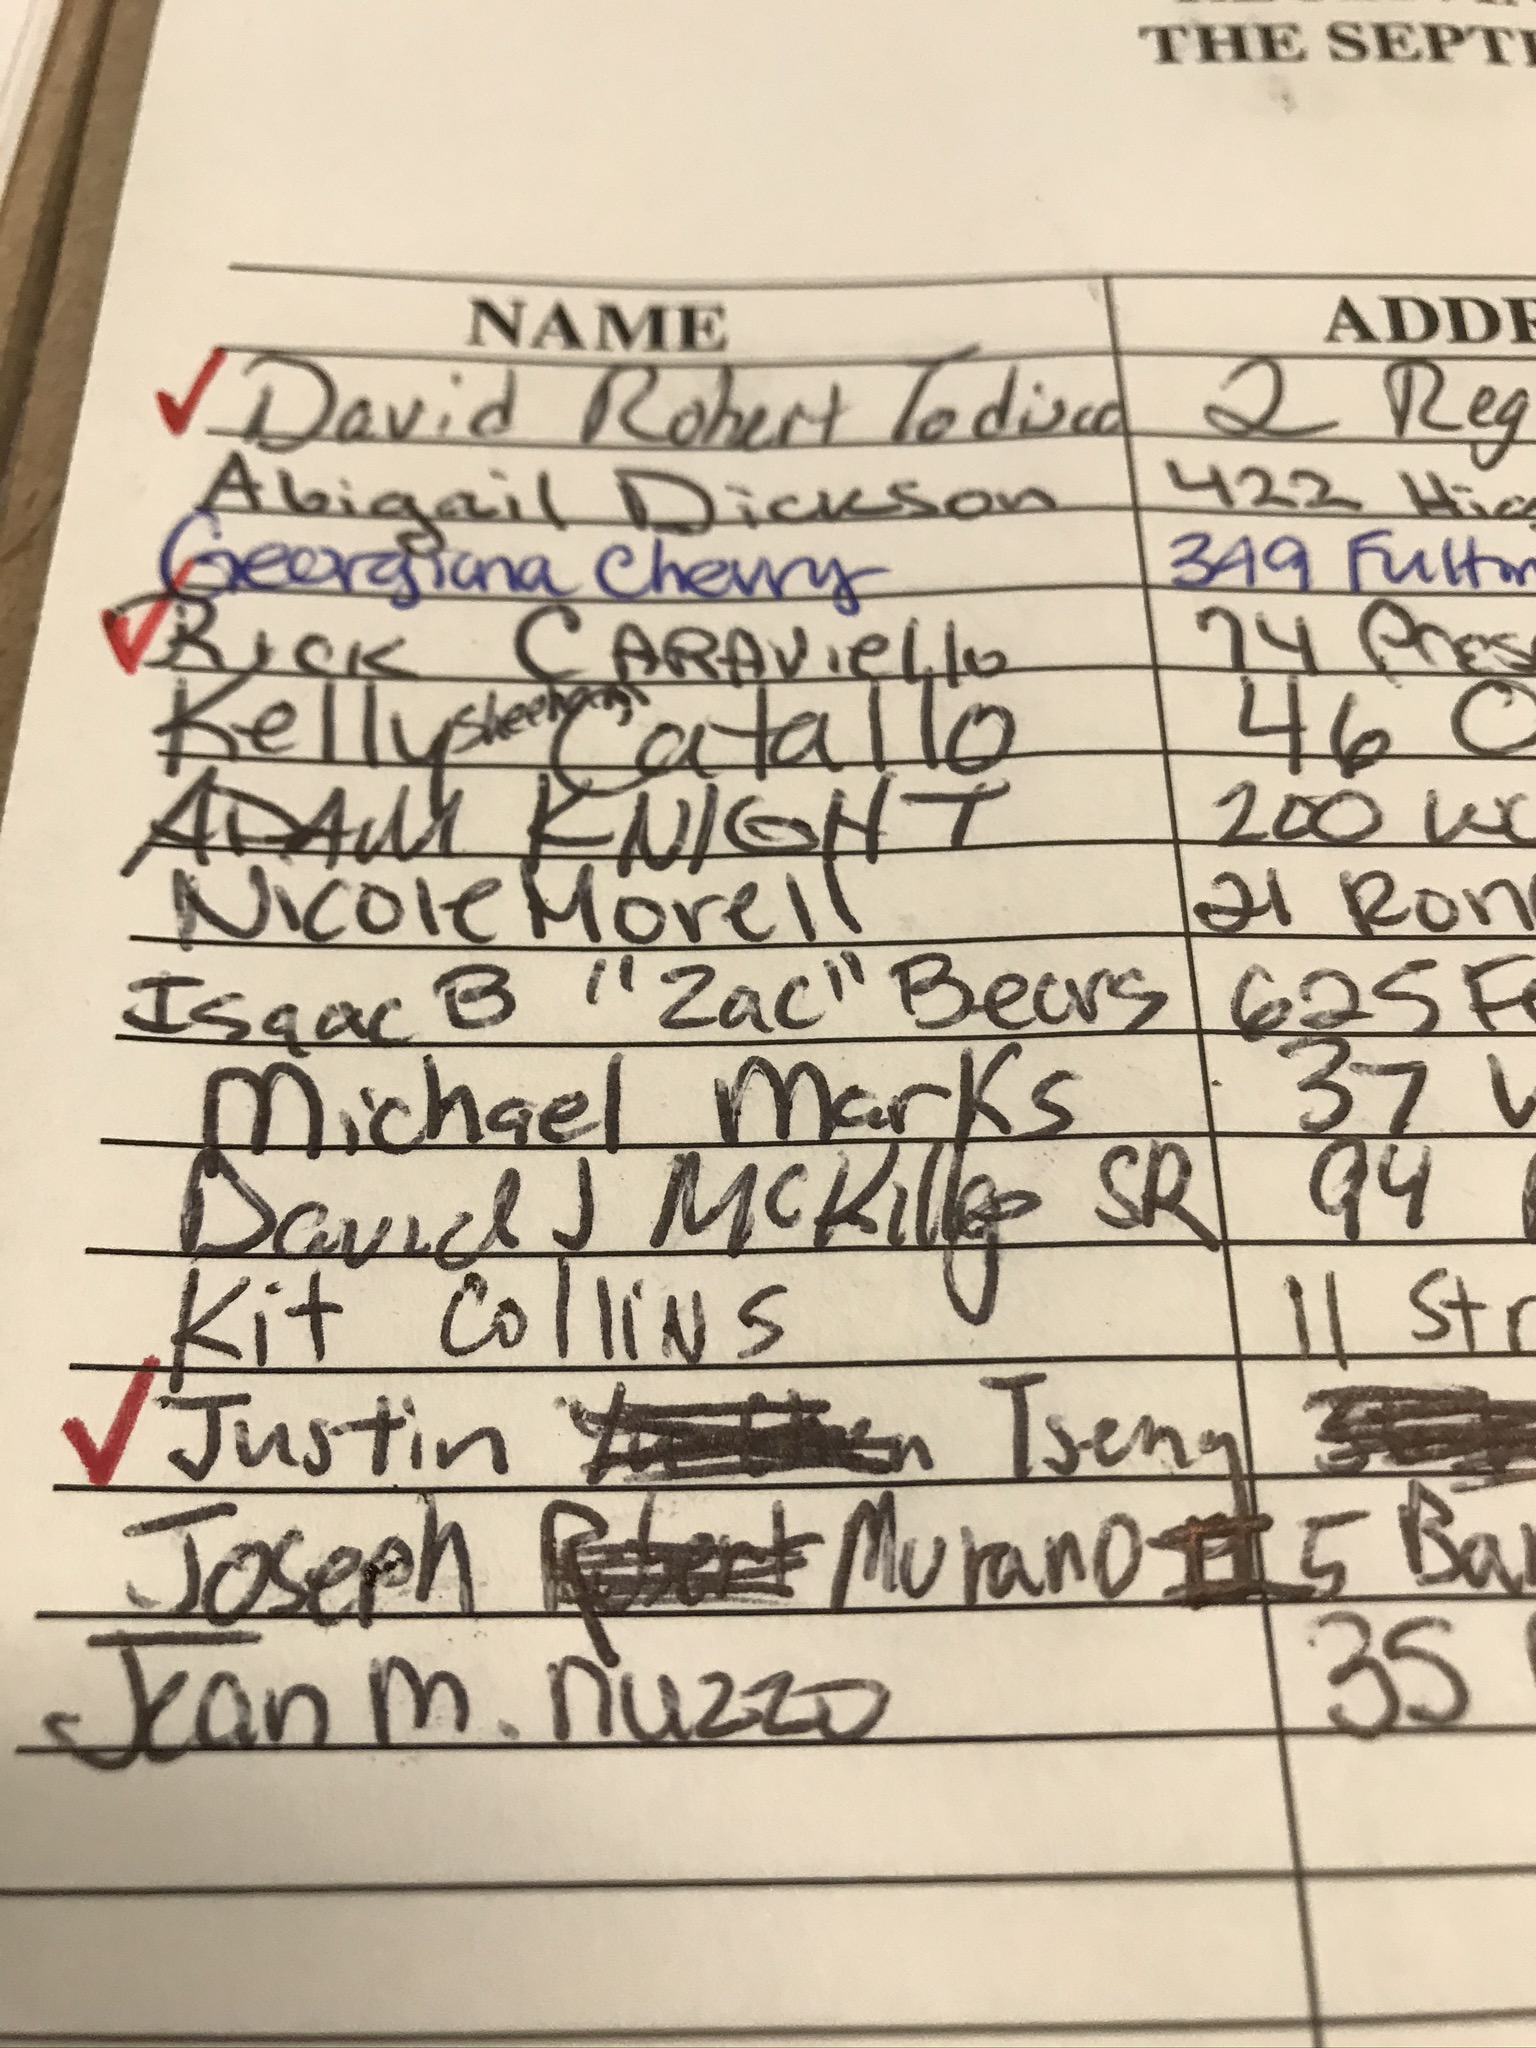 THE SEPT
NAME ADD
David Robert Todisco 2 Reg
Abigail Dickson 422 Hig
Georgiana Chevry 349 Fulton
Rick CARAViello 24 Pres
Kelly Sheehan Catallo 46
ADAM KNIGHT 200
Nicole Morell 21 Ron
Isaac B "Zac" Bears 625 Fe
Michael Marks 37
David J McKillop SR 94
Kit Collins 11 Str
Justin Tseng
Joseph Robert Murano 5 Bar
Jean M. Nuzzo 35